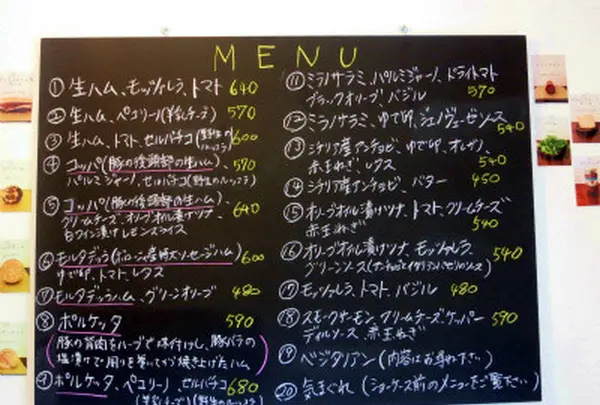 MENU
① 生ハム、モッツァレラ、トマト 640
② 生ハム、ペコリーノ(羊乳チーズ) 570
③ 生ハム、トマト、セルバチコ(野生のルッコラ) 600
④ コッパ(豚の後頭部の生ハム)、570
パルミジャーノ、セルバチコ(野生のルッコラ)
⑤ コッパ(豚の後頭部の生ハム)、
クリームチーズ、オリーブオイル漬けツナ、 640
白ワイン漬けレモンスライス
⑥ モルタデッラ(ボローニャ産特大ソーセージハム) 600
ゆで卵、トマト、レタス
⑦ モルタデッラハム、グリーンオリーブ 480
⑧ ポルケッタ 590
(豚の筋肉をハーブで味付けし、豚バラの
塩漬けで周りを巻いてから焼き上げたハム)
⑨ ポルケッタ、ペコリーノ、セルバチコ 680
(羊乳チーズ)(野生のルッコラ)
⑪ ミラノサラミ、パルミジャーノ、ドライトマト
ブラックオリーブ、バジル 570
⑫ ミラノサラミ、ゆで卵、ジェノヴェーゼソース
540
⑬ シチリア産アンチョビ、ゆで卵、オレガノ、
赤玉ねぎ、レタス 540
⑭ シチリア産アンチョビ、バター 450
⑮ オリーブオイル漬けツナ、トマト、クリームチーズ
赤玉ねぎ 540
⑯ オリーブオイル漬けツナ、モッツァレラ、 540
グリーンソース(アンチョビとイタリアンパセリのソース)
⑰ モッツァレラ、トマト、バジル 480
⑱ スモークサーモン、クリームチーズ、ケッパー 590
ディルソース、赤玉ねぎ
⑲ ベジタリアン (内容はお尋ね下さい)
⑳ 気まぐれ (ショーケース前のメニューをご覧下さい)